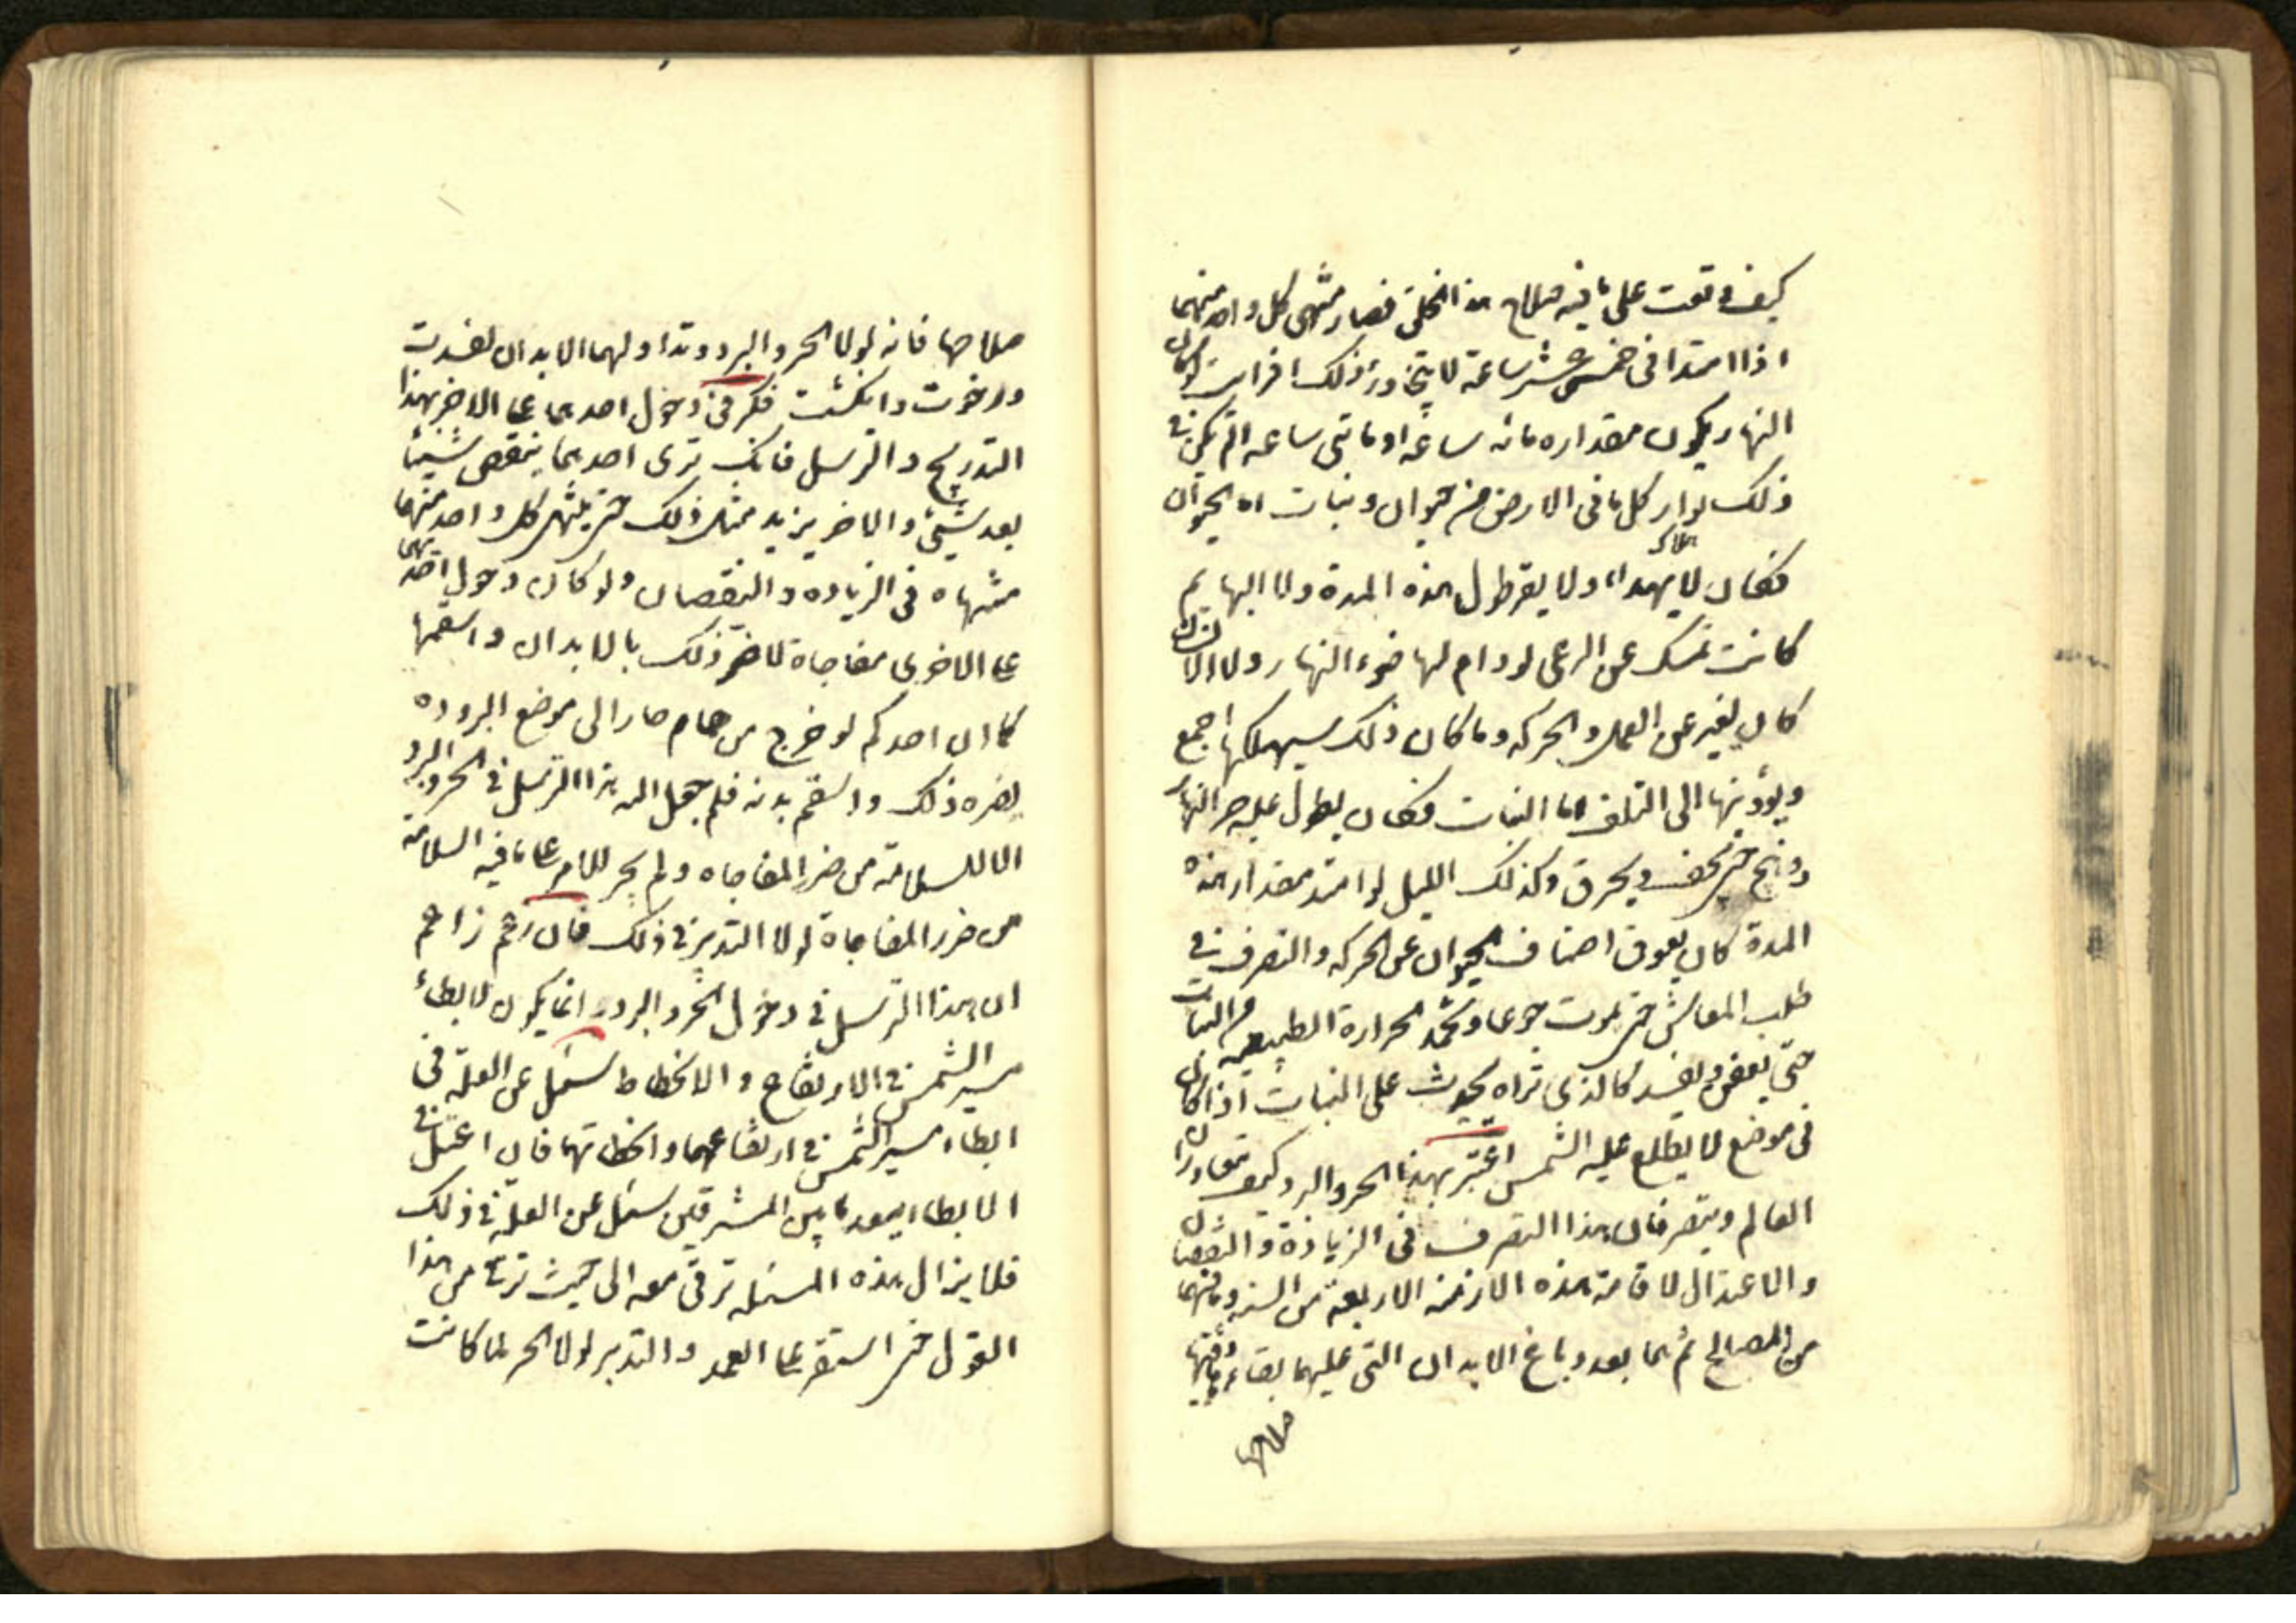 كيف وقعت على ما فيه صلاح هذا الخلق فصار منتهى كل واحد منهما
اذا امتدا فى خمس عشر ساعة لا يتجاوز ذلك افرايت لو كان
النهار يكون مقداره مائه ساعة او مائتى ساعه الم يكن فى
ذلك بوار كل ما فى الارض من حيوان ونبات اما الحيوان
فكان لا يهدا ولا يقر طول هذه المدة ولا البهائم
كانت تمسك عن الرعى لو دام لها ضوء النهار ولا الانسان
كان يفتر عن العمل والحركه وما كان ذلك سيهلكها اجمع
ويؤديها الى التلف اما النبات فكان يطول عليه حر النهار
ووهج حتى يجف ويحرق وكذلك الليل لو امتد مقدار هذه
المدة كان يعوق اصناف الحيوان عن الحركه والتصرف فى
طلب المعاش حتى تموت جوعا وتخمد الحرارة الطبيعيه من النبات
حتى يعفن ويفسد كالذى تراه يحدث على النبات اذا كان
فى موضع لا يطلع عليه الشمس اعتبر بهذا الحر والبرد كيف يتعاوران
العالم ويتصرفان هذا التصرف فى الزيادة والنقصان
والاعتدال لاقامة هذه الازمنه الاربعة من السنه وما فيهما
من المصالح ثم هما بعد دباغ الابدان التى عليهما بقاءها وفيهما
صلاحها
صلاحها فانه لولا الحر والبرد وتداولهما الابدان لفسدت
ورخوت وانكثت فكر فى دخول احدهما على الاخر بهذا
التدريج والترسل فانك ترى احدهما ينقص شيئا
بعد شيئ والاخر يزيد مثل ذلك حتى ينتهى كل واحد منهما
منتهاه فى الزياده والنقصان ولو كان دخول احدهما
على الاخرى مفاجاة لاضر ذلك بالابدان واسقمها
كما ان احدكم لو خرج من حمام حار الى موضع البروده
لضره ذلك واسقم بدنه فلم جعل الله هذا الترسل فى الحر والبرد
الا للسلامة من ضرر المفاجاه ولم يجر الامر على ما فيه السلامة
من ضرر المفاجاة لولا التدبير فى ذلك فان زعم زاعم
ان هذا الترسل فى دخول الحر والبرد انما يكون لابطاء
مسير الشمس فى الارتفاع والانحطاط سئل عن العلة فى
ابطاء مسير الشمس فى ارتفاعهما وانحطاتهما فان اعتل فى
الابطاء ببعد ما بين المشرقين سئل عن العلة فى ذلك
فلا يزال هذه المسئله ترقى معه الى حيث ترقى من هذا
القول حتى استقر على العمد والتدبير لولا الحر لما كانت